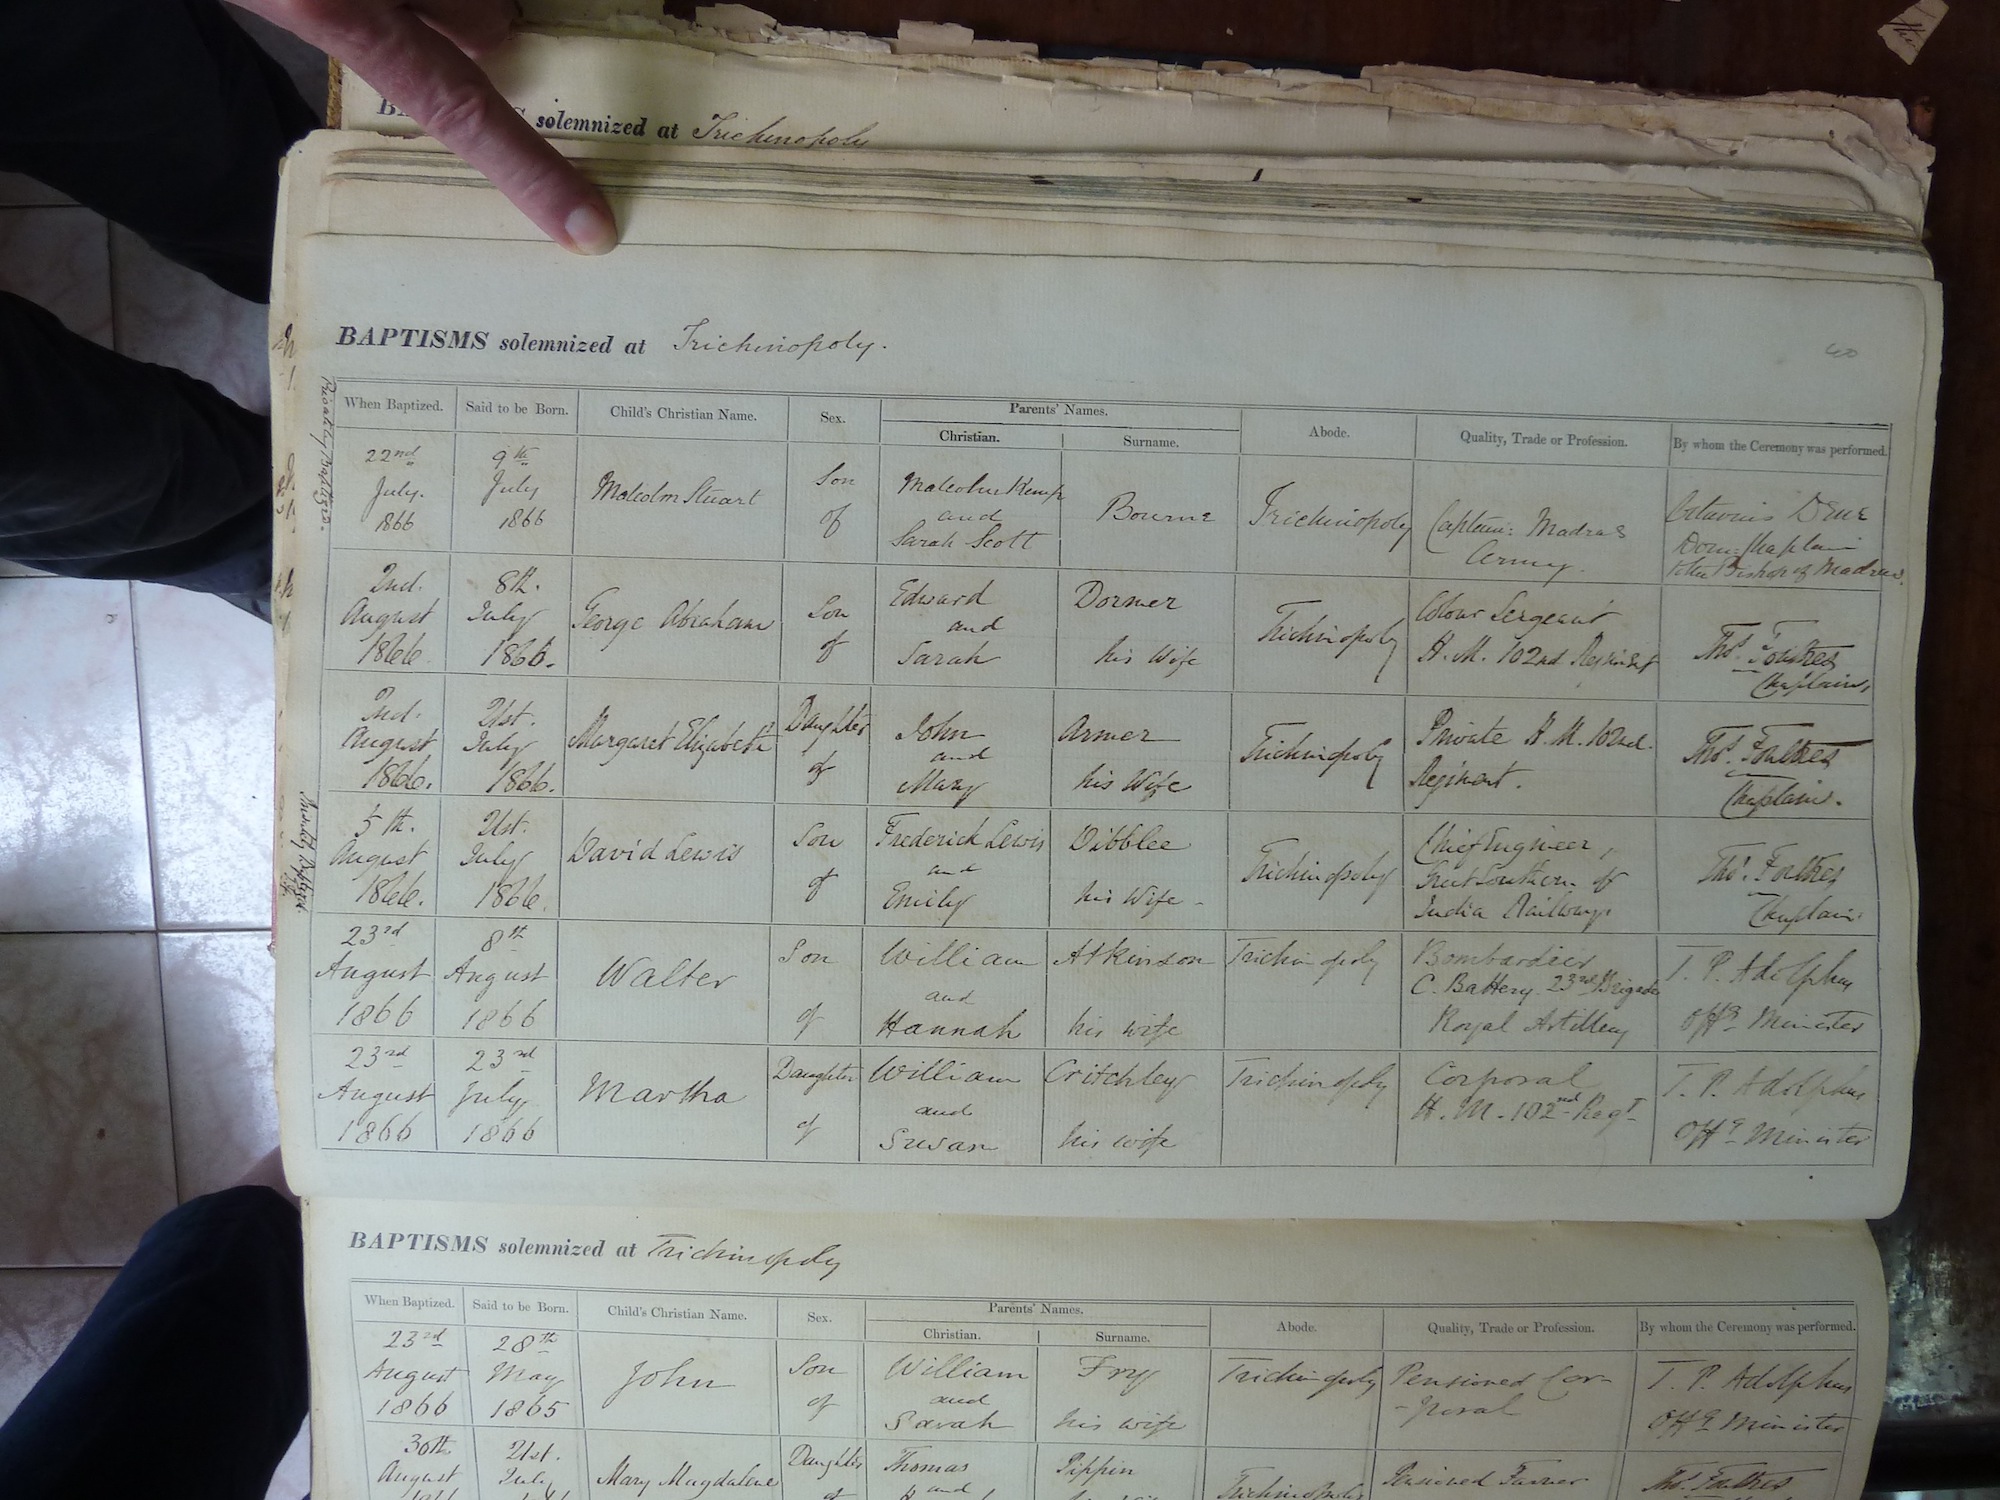 solemnized at Trichinopoly
BAPTISMS solemnized at Trichinopoly.
60
Privately Baptized.
When Baptized. Said to be Born. Child's Christian Name. Sex. Parents' Names. Abode. Quality, Trade or Profession. By whom the Ceremony was performed.
Christian. Surname.
22nd July. 1866
9th July 1866
Malcolm Stuart
Son of
Malcolm Kemp and Sarah Scott
Bourne
Trichinopoly
Captain: Madras Army.
Octavius Dene
Dom: Chaplain
to the Bishop of Madras.
2nd. August 1866.
8th. July 1866.
George Abraham
Son of
Edward and Sarah
Dormer his Wife
Trichinopoly
Colour Sergeant
H. M. 102nd Regiment
Thos. Foulkes
Chaplain.
2nd. August 1866.
21st. July 1866.
Margaret Elizabeth
Daughter of
John and Mary
Armer his Wife
Trichinopoly
Private H. M. 102nd.
Regiment.
Thos. Foulkes
Chaplain.
5th. August 1866.
21st. July 1866.
David Lewis
Son of
Frederick Lewis and Emily
Dibblee his Wife
Trichinopoly
Chief Engineer,
Great Southern of
India Railway.
Thos. Foulkes
Chaplain
23rd August 1866
8th August 1866
Walter
Son of
William and Hannah
Atkinson his wife
Trichinopoly
Bombardier
C. Battery 23rd Brigade
Royal Artillery
T. P. Adolphus
Offg Minister
23rd August 1866
23rd July 1866
Martha
Daughter of
William and Susan
Critchley his wife
Trichinopoly
Corporal
H. M. 102nd Regt
T. P. Adolphus
Offg Minister
BAPTISMS solemnized at Trichinopoly
When Baptized. Said to be Born. Child's Christian Name. Sex. Parents' Names. Abode. Quality, Trade or Profession. By whom the Ceremony was performed.
Christian. Surname.
23rd August 1866
28th May 1865
John
Son of
William and Sarah
Fry his wife
Trichinopoly
Pensioned Cor-
-poral
T. P. Adolphus
Offg Minister
30th August
21st. July
Mary Magdalene
Daughter
Thomas and
Pippin
Trichinopoly
Pensioned Farrier
Thos. Foulkes